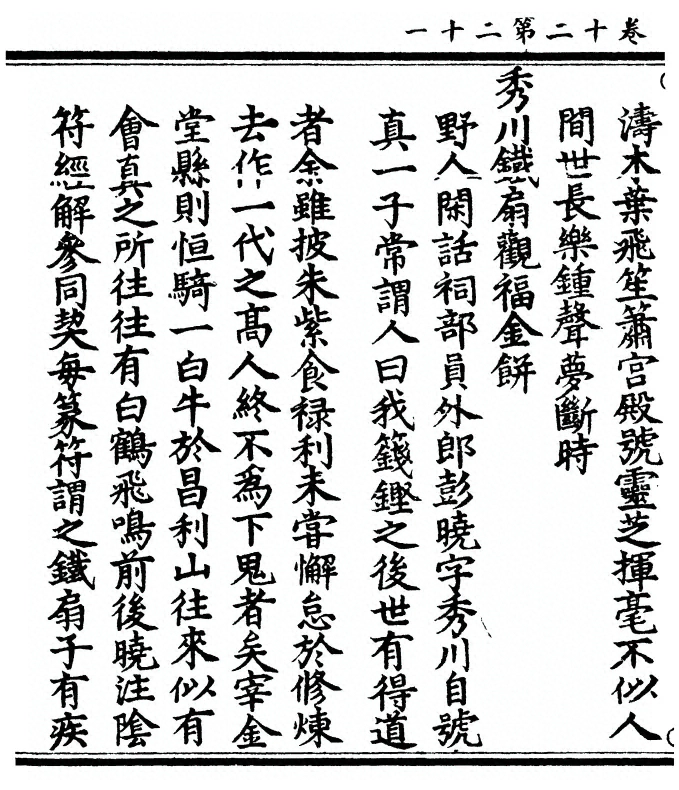 卷十二第二十一
濤木葉飛笙簫宮殿號靈芝揮毫不似人
間世長樂鍾聲夢斷時
秀川鐵扇觀福金餅
野人閑話祠部員外郎彭曉字秀川自號
真一子常謂人曰我籛鏗之後世有得道
者余雖披朱紫食祿利未嘗懈怠於修煉
去作一代之高人終不爲下鬼者矣宰金
堂縣則恒騎一白牛於昌利山往來似有
會真之所往往有白鶴飛鳴前後曉注陰
符經解參同契每篆符謂之鐵扇子有疾